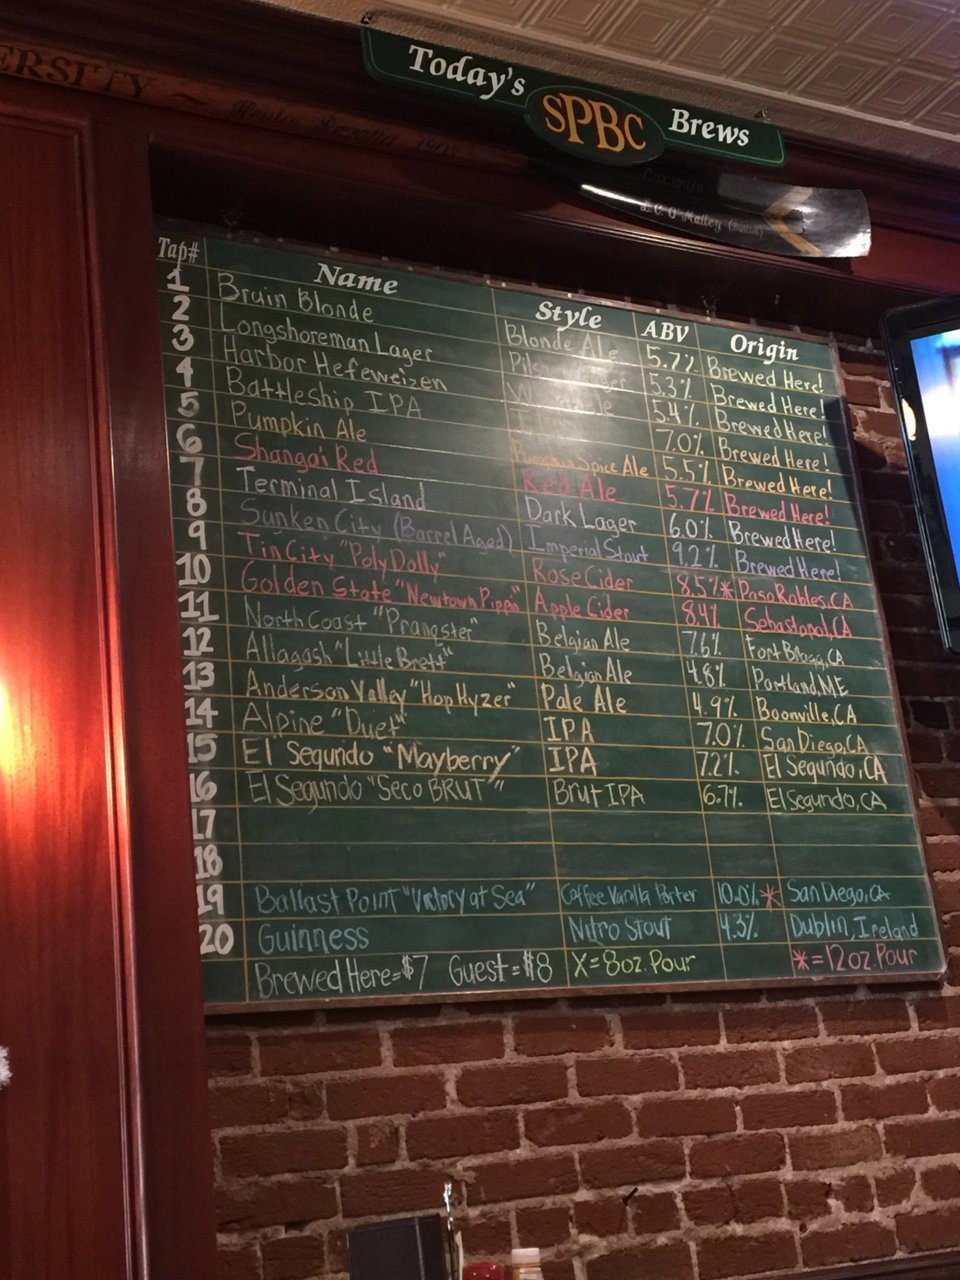 ERSITY ~
Henley Regatta 1908
Today's SPBC Brews
L. C. O'Malley
Tap# Name Style ABV Origin
1 Bruin Blonde Blonde Ale 5.7% Brewed Here!
2 Longshoreman Lager 5.3% Brewed Here!
3 Harbor Hefeweizen 5.4% Brewed Here!
4 Battleship IPA 7.0% Brewed Here!
5 Pumpkin Ale Pumpkin Spice Ale 5.5% Brewed Here!
6 Shangai Red Red Ale 5.7% Brewed Here!
7 Terminal Island Dark Lager 6.0% Brewed Here!
8 Sunken City (Barrel Aged) Imperial Stout 9.2% Brewed Here!
9 Tin City "Poly Dolly" Rose Cider 8.5%* Paso Robles, CA
10 Golden State "Newtown Pippin" Apple Cider 8.4% Sebastopol, CA
11 North Coast "Prangster" Belgian Ale 7.6% Fort Bragg, CA
12 Allagash "Little Brett" Belgian Ale 4.8% Portland, ME
13 Anderson Valley "Hop Hyzer" Pale Ale 4.9% Boonville, CA
14 Alpine "Duet" IPA 7.0% San Diego, CA
15 El Segundo "Mayberry" IPA 7.2% El Segundo, CA
16 El Segundo "Seco BRUT" Brut IPA 6.7% El Segundo, CA
17
18
19 Ballast Point "Victory at Sea" Coffee Vanilla Porter 10.0%* San Diego, CA
20 Guinness Nitro Stout 4.3% Dublin, Ireland
Brewed Here=$7 Guest=$8 X=8oz. Pour *=12oz. Pour